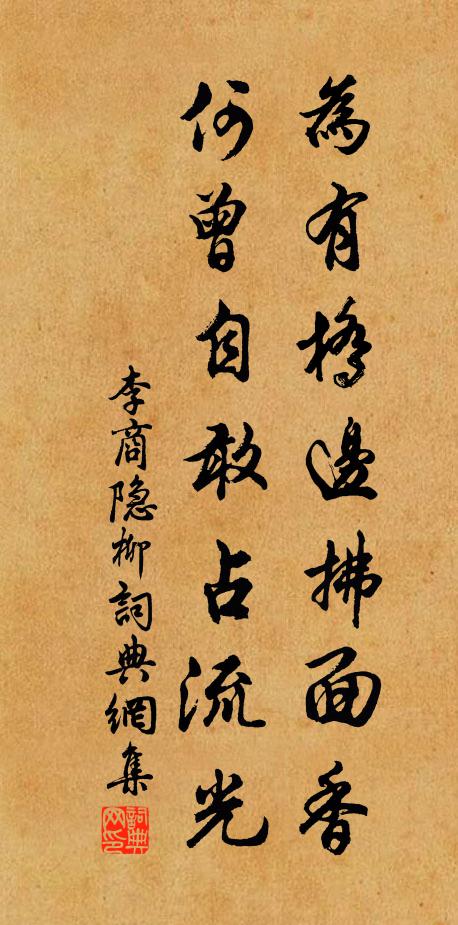 為有橋邊拂面香
何曾自敢占流光
李商隐柳詞典網集
詞典网印